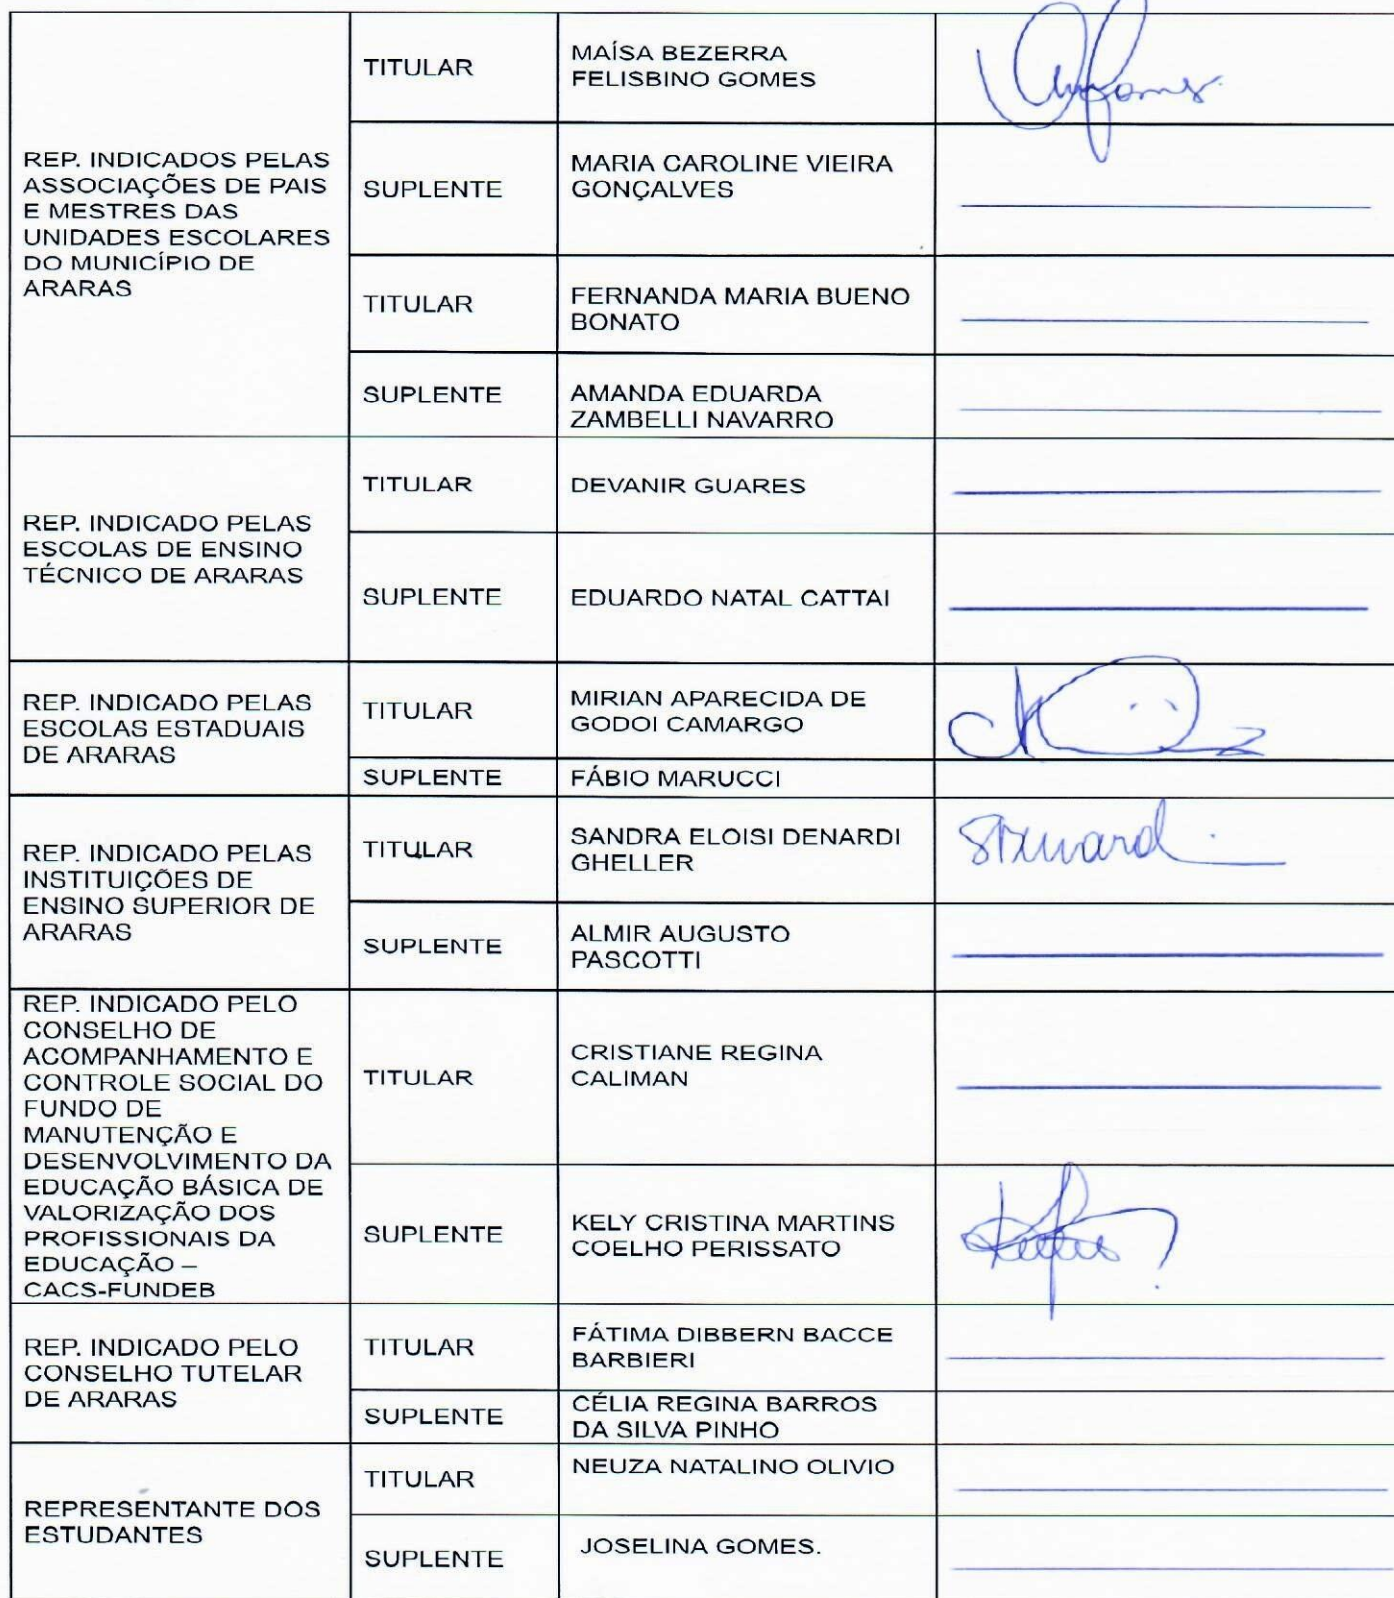 TITULAR
MAÍSA BEZERRA
FELISBINO GOMES
REP. INDICADOS PELAS
ASSOCIAÇÕES DE PAIS
E MESTRES DAS
UNIDADES ESCOLARES
DO MUNICÍPIO DE
ARARAS
SUPLENTE
MARIA CAROLINE VIEIRA
GONÇALVES
TITULAR
FERNANDA MARIA BUENO
BONATO
SUPLENTE
AMANDA EDUARDA
ZAMBELLI NAVARRO
REP. INDICADO PELAS
ESCOLAS DE ENSINO
TÉCNICO DE ARARAS
TITULAR
DEVANIR GUARES
SUPLENTE
EDUARDO NATAL CATTAI
REP. INDICADO PELAS
ESCOLAS ESTADUAIS
DE ARARAS
TITULAR
MIRIAN APARECIDA DE
GODOI CAMARGO
SUPLENTE
FÁBIO MARUCCI
REP. INDICADO PELAS
INSTITUIÇÕES DE
ENSINO SUPERIOR DE
ARARAS
TITULAR
SANDRA ELOISI DENARDI
GHELLER
SUPLENTE
ALMIR AUGUSTO
PASCOTTI
REP. INDICADO PELO
CONSELHO DE
ACOMPANHAMENTO E
CONTROLE SOCIAL DO
FUNDO DE
MANUTENÇÃO E
DESENVOLVIMENTO DA
EDUCAÇÃO BÁSICA DE
VALORIZAÇÃO DOS
PROFISSIONAIS DA
EDUCAÇÃO –
CACS-FUNDEB
TITULAR
CRISTIANE REGINA
CALIMAN
SUPLENTE
KELY CRISTINA MARTINS
COELHO PERISSATO
REP. INDICADO PELO
CONSELHO TUTELAR
DE ARARAS
TITULAR
FÁTIMA DIBBERN BACCE
BARBIERI
SUPLENTE
CÉLIA REGINA BARROS
DA SILVA PINHO
REPRESENTANTE DOS
ESTUDANTES
TITULAR
NEUZA NATALINO OLIVIO
SUPLENTE
JOSELINA GOMES.